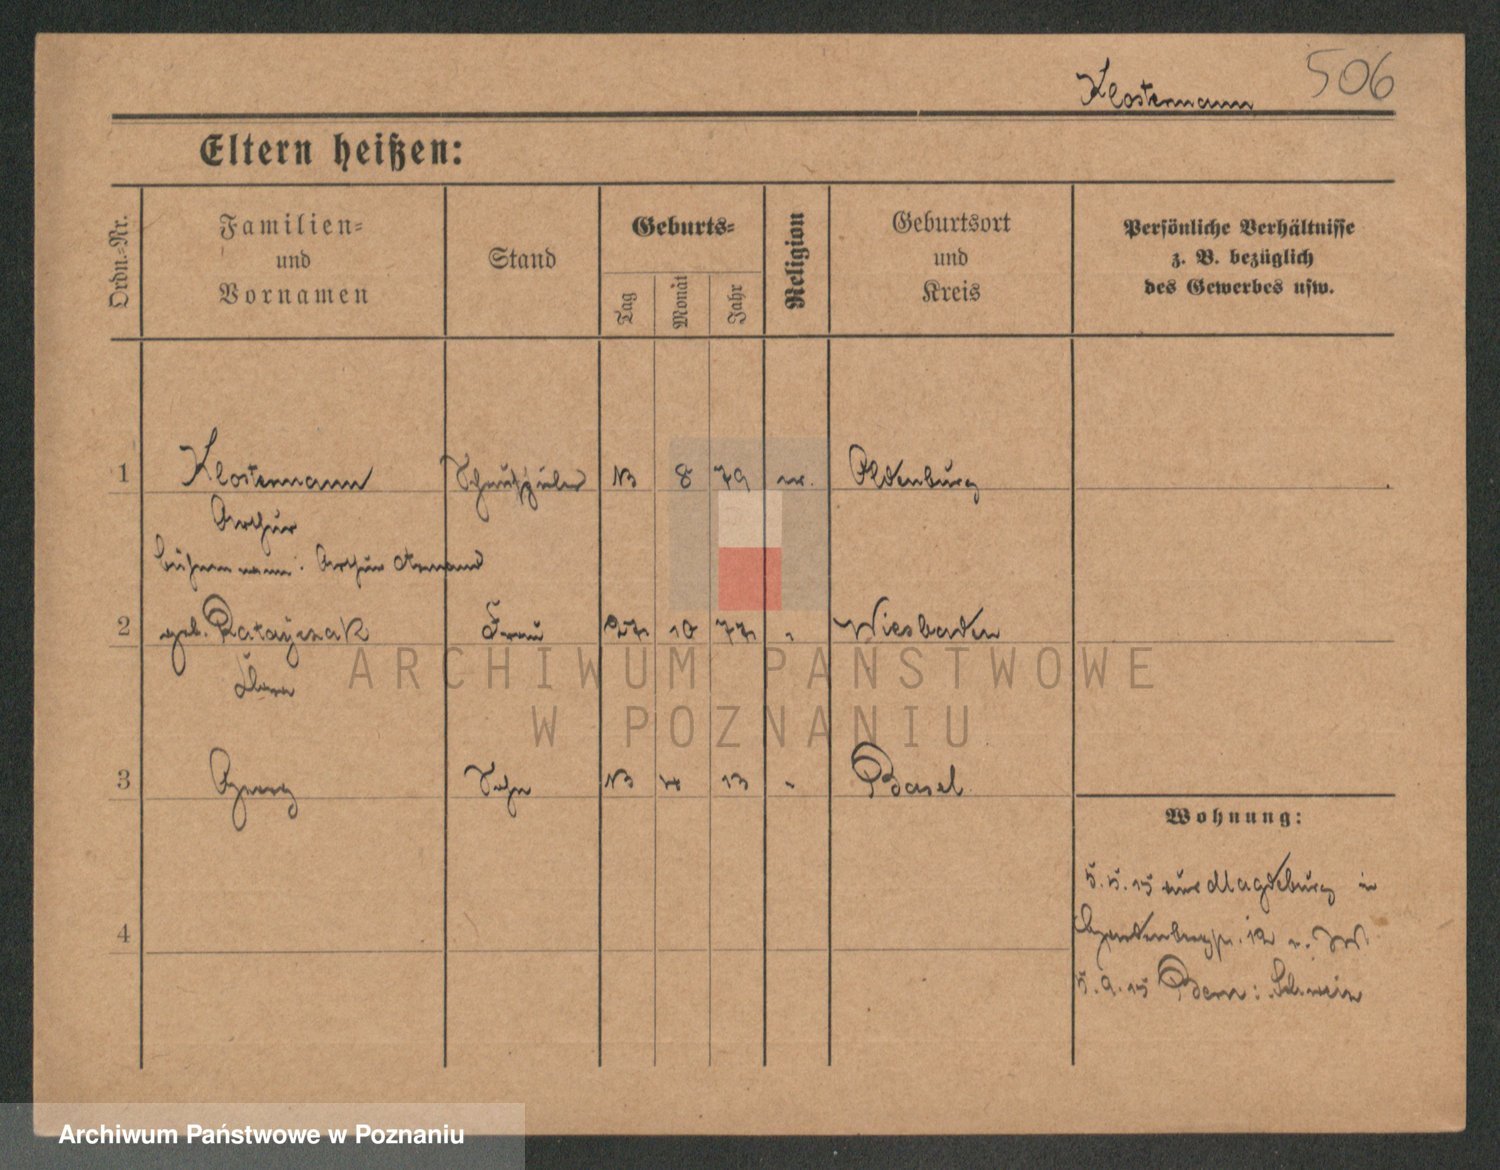 Klostermann 506
Eltern heißen:
Ordn.-Nr.
Familien-
und
Vornamen
Stand
Geburts-
Tag
Monat
Jahr
Religion
Geburtsort
und
Kreis
Persönliche Verhältnisse
z. B. bezüglich
des Gewerbes usw.
1 Klostermann Schauspieler 13 8 79 Oldenburg
Arthur
Arthur Armand
2 geb. Ratajczak Frau 27 10 77 " Wiesbaden
3 Georg Sohn 13 4 13 " Basel
Wohnung:
4
5.5.15 aus Magdeburg in
5.9.15 Bern: Schweiz
ARCHIWUM PAŃSTWOWE
W POZNANIU
Archiwum Państwowe w Poznaniu